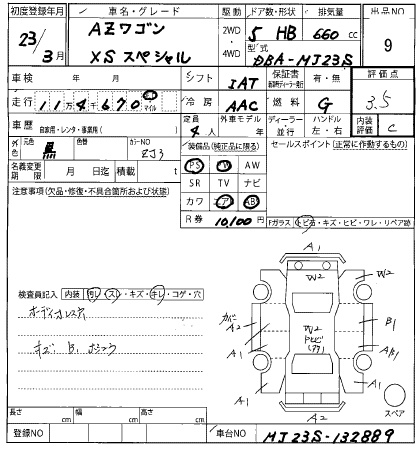 初度登録年月 車名・グレード 駆動 ドア数・形状 排気量 出品NO
23/3月 AZワゴン XSスペシャル 2WD・4WD 5 HB 660 cc 9
型式 DBA-MJ23S
車検 年 月 シフト IAT 保証書 有・無 評価点
走行 114670 マイル 冷房 AAC 燃料 G 3.5
車歴 自家用・レンタ・事業用( ) 定員 4人 外車モデル 年 ディーラー・並行 ハンドル 左・右 内装評価 C
外色 元色 黒 色替 カラーNO ZJ3 装備品(純正品に限る) セールスポイント(正常に作動するもの)
名義変更期限 月 日迄 積載 t PS PW AW
注意事項(欠品・修復・不具合箇所および状態) SR TV ナビ
カワ エアB AB
R券 10,100円 Fガラス トビ石・キズ・ヒビ・ワレ・リペア跡
A1
W2 W2
検査員記入 内装 汚レ・スレ・キズ・キレ・コゲ・穴
オーディオレス
カバー A2 W2 B1
A1 A,B1
A1 A1
A2 スペア
長さ cm 幅 cm 高さ cm
登録NO 車台NO MJ23S-132889